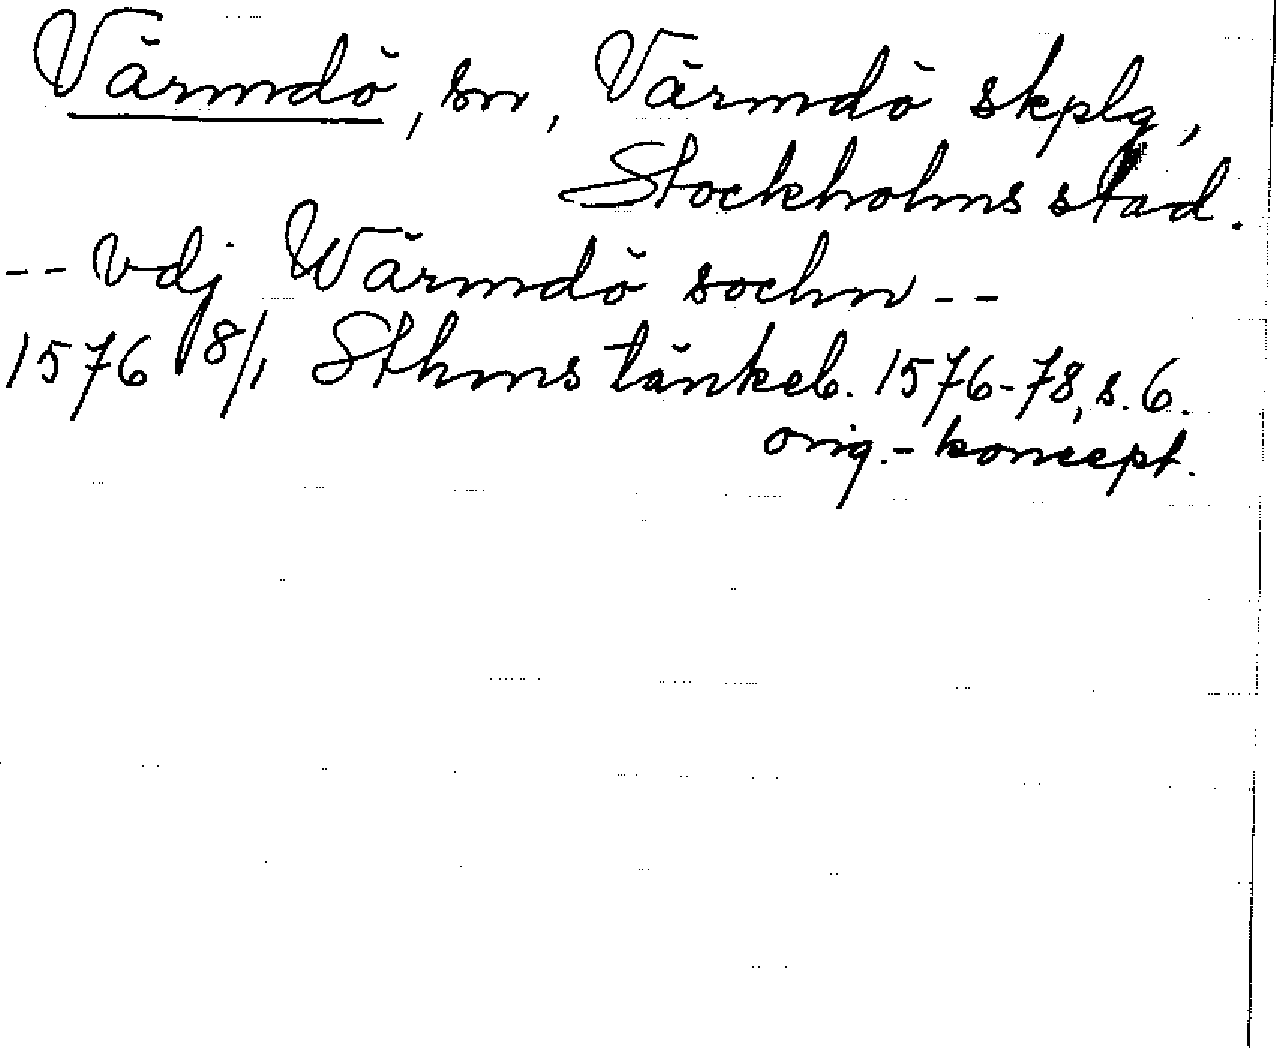 Värmdö, sn, Värmdö skplg,
Stockholms stad.
-- vdj Wärmdö sochn --
1576 18/1 Sthms tänkeb. 1576-78, s. 6.
orig.- koncept.